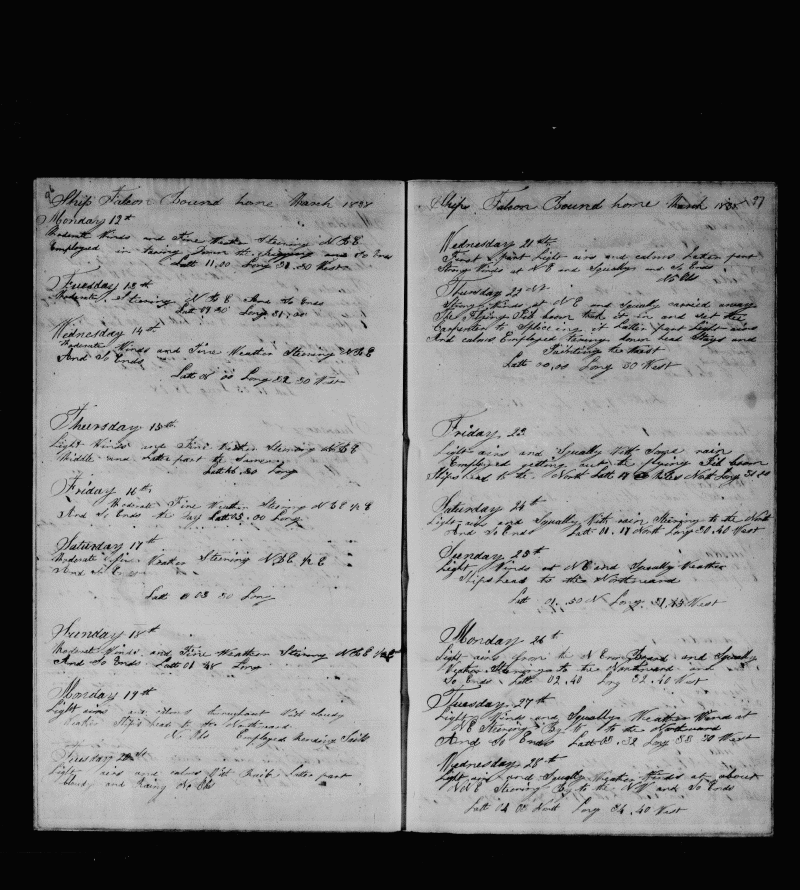 96
Ship Falcon Bound home March 1838
Monday 12th
Moderate Winds and Fine Weather Steering N b E
Employed in down the and So Ends
Latt 11,00 Long West
Tuesday 13th
Moderate Steering N b E And So Ends
Latt Long 31,00
Wednesday 14th
Moderate Winds and Fine Weather Steering N b E
And So Ends
Latt Long 32 30 West
Thursday 15th
Light Winds and Fine Weather Steering N b E
Middle and Latter part the Same
Latt Long
Friday 16th
Moderate Fine Weather Steering N b E 1/2 E
And So Ends the Day Latt 00 Long
Saturday 17th
Moderate fine Weather Steering N b E 1/2 E
And So E
Latt 03 30 Long
Sunday 18th
Moderate Winds and Fine Weather Steering N b E 1/2 E
And So Ends Latt 01 38 Long
Monday 19th
Light airs and calms throughout cloudy
Weather Ships head to the Northward
No Obs Employed Mending Sails
Tuesday 20th
Light airs and calms Latter part
Cloudy and Rainy No Obs
Ship Falcon Bound home March 1838 97
Wednesday 21st
First part Light airs and calms Latter part
Strong Winds at N E and Squally and So Ends
No Obs
Thursday
Strong Winds at N E and Squally carried away
The Flying Jib boom took it in and set the
Carpenter to Splicing it Latter part Light airs
And calms Employed down head Stays and
Painting the Mast
Latt 00,00 Long 30 West
Friday 23
Light airs and Squally With Some rain
Employed getting out the flying Jib boom
Ships head to the North Latt North Long
Saturday 24th
Light airs and Squally With rain Steering to the North
And So Ends Latt 01.17 North Long 30.40 West
Sunday 25th
Light Winds at N E and Squally Weather
Ships head to the Northward
Latt 01.50 N Long 31.15 West
Monday 26th
Light airs from the N E and Squally
Weather Steering to the Northward and
So Ends Latt 02.40 Long 32.40 West
Tuesday 27th
Light Wind and Squally Weather Wind at
N E Steering By to the Northward
And So Ends Latt 03.32 Long 33 30 West
Wednesday 28th
Light airs and Squally Weather Winds at about
N N E Steering By to the N W and So Ends
Latt 04 North Long 34.40 West